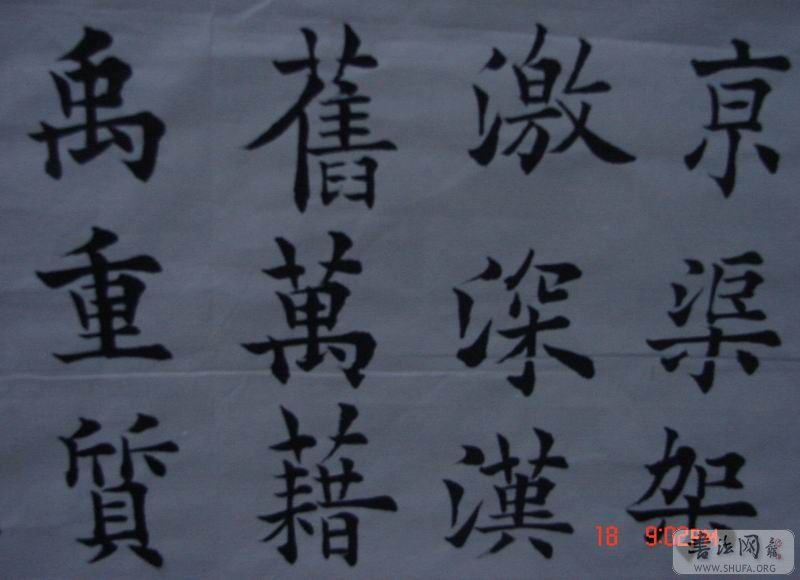 亰渠架
激深漢
舊萬藉
禹重質
18 9:02PM
書法网
WWW.SHUFA.ORG